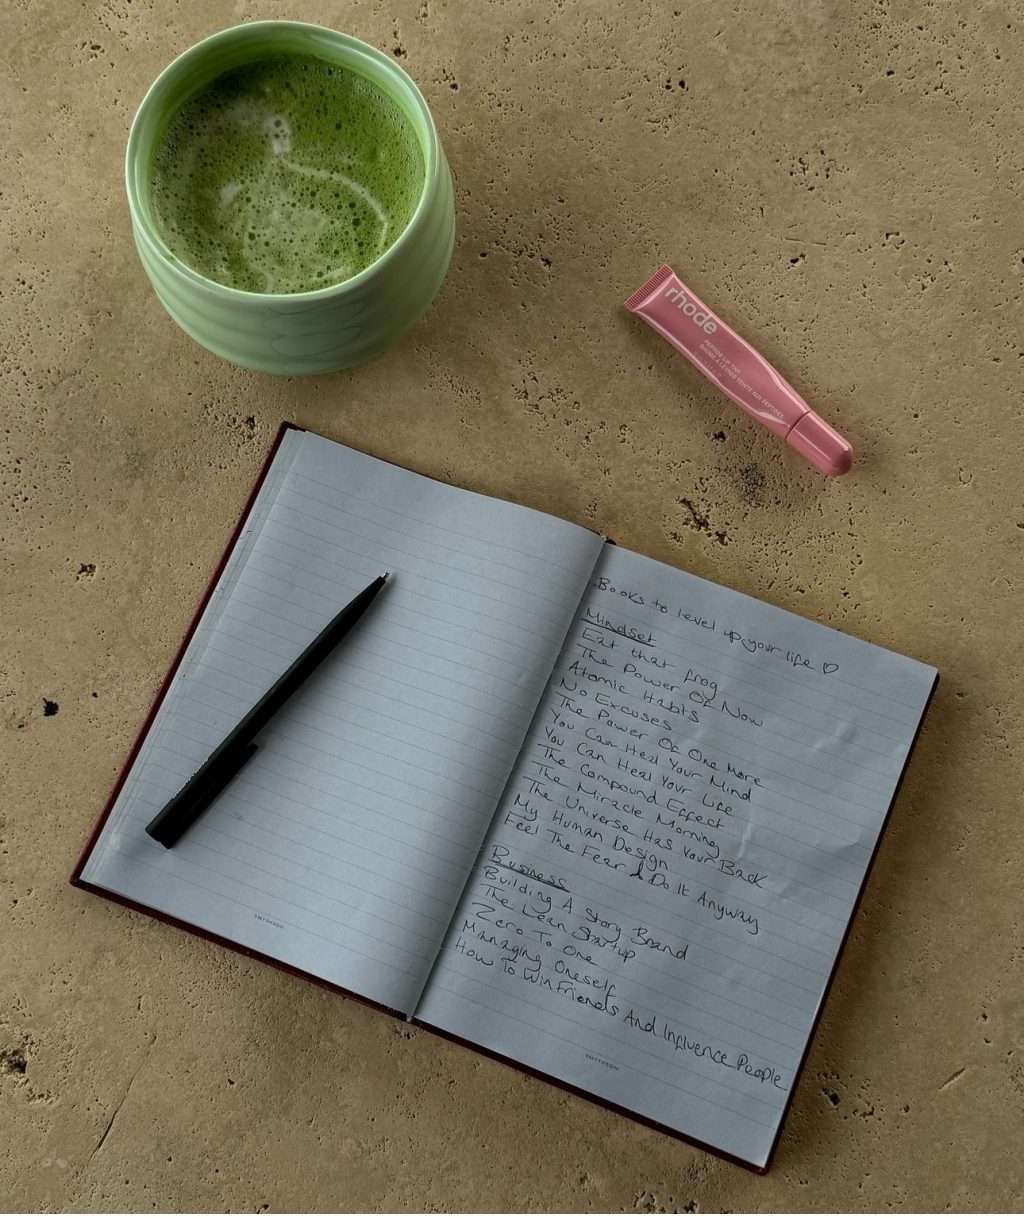 rhode
PEPTIDE LIP TINT
BAUME À LÈVRES TEINTÉ AUX PEPTIDES
Books to level up your life ♡
Mindset
Eat that frog
The Power Of Now
Atomic Habits
No Excuses
The Power Of One More
You Can Heal Your Mind
You Can Heal Your Life
The Compound Effect
The Miracle Morning
The Universe Has Your Back
My Human Design
Feel The Fear & Do It Anyway
Business
Building A Story Brand
The Lean Startup
Zero To One
Managing Oneself
How To Win Friends And Influence People